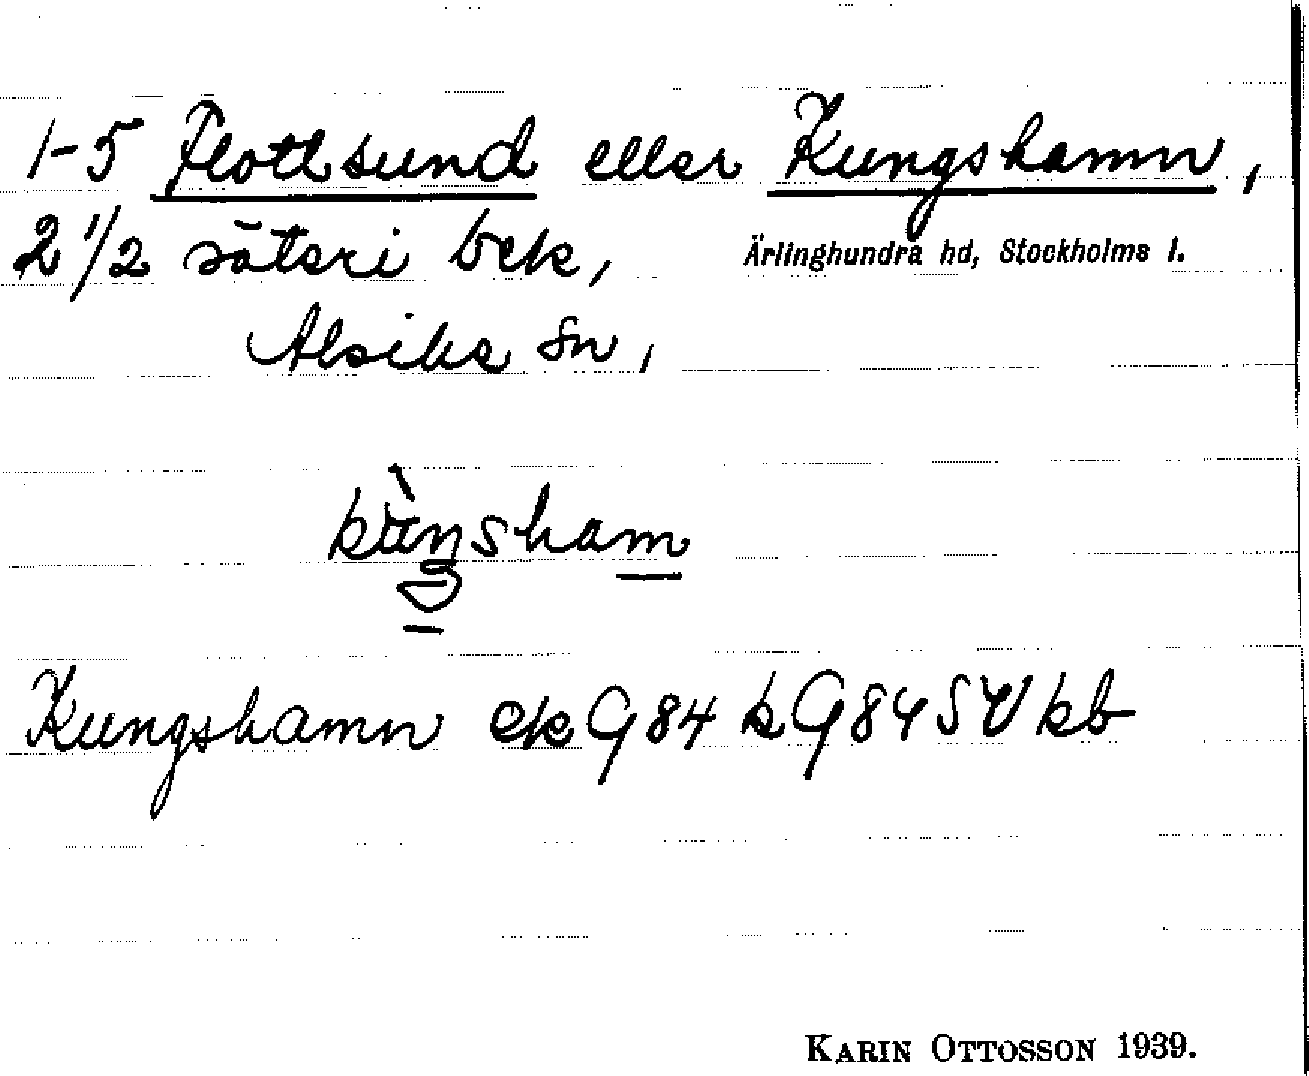 1-5 Flottsund eller Kungshamn,
2 1/2 säteri bek, Ärlinghundra hd, Stockholms l.
Alsike sn,
kùŋsham
Kungshamn ek G 84 k G 84 SV kb
KARIN OTTOSSON 1939.